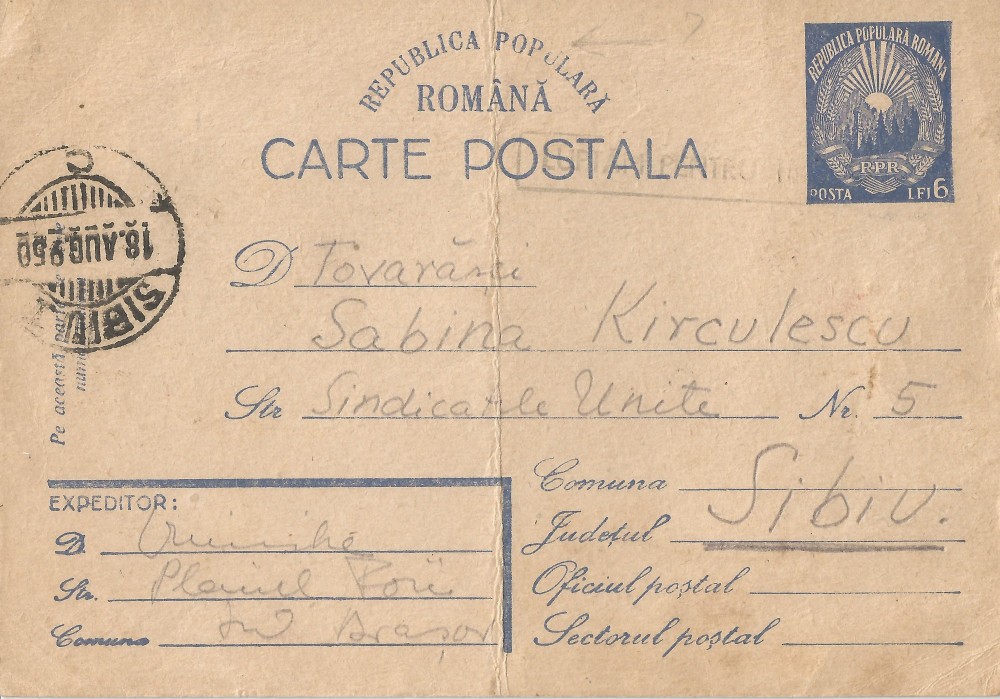 REPUBLICA POPULARA
ROMÂNĂ
CARTE POSTALA
REPUBLICA POPULARA ROMANA
RPR
POSTA LEI 6
C
18.AUG.950
SIBIU
Pe această parte
D Tovarășei
Sabina Kirculescu
Str Sindicatele Unite Nr. 5
Comuna
Județul Sibiu.
Oficiul poștal
Sectorul poștal
EXPEDITOR:
D.
Str. Plaiul
Comuna Brașov